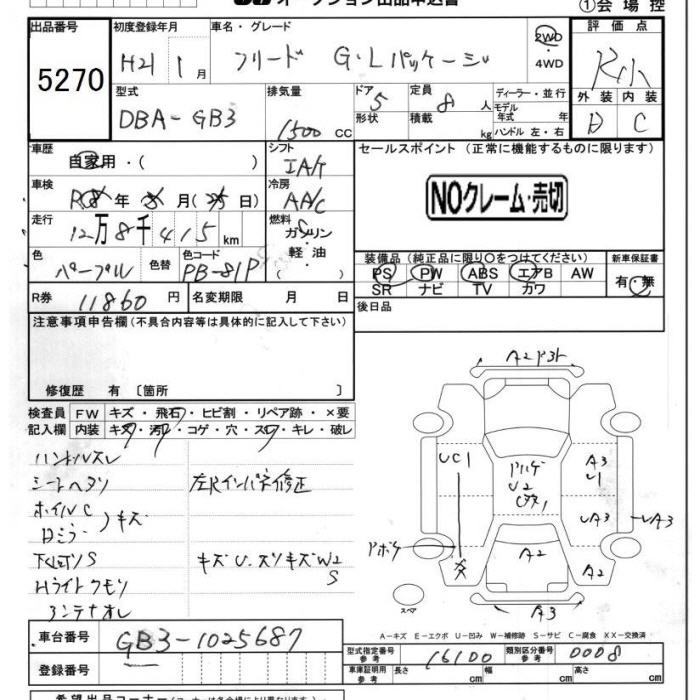 オークション出品申込書
①会場控
出品番号 初度登録年月 車名・グレード 評価点
5270 H21 1月 フリード G・Lパッケージ 2WD ・ 4WD
型式 排気量 ドア 5 定員 8 人 ディーラー・並行 外装 内装
DBA-GB3 1500 cc 形状 積載 kg モデル年式 年 ハンドル 左・右 D C
車歴 シフト セールスポイント (正常に機能するものに限ります)
自家用・( ) IA/T
車検 年 月 ( 日) 冷房 A/C
NOクレーム・売切
走行 12万8千415km 燃料 ガソリン 軽油 ( )
装備品 (純正品に限り○をつけてください) 新車保証書
色 パープル 色替 色コード PB-81P
PS PW ABS エアB AW 有・無
SR ナビ TV カワ
R券 11860円 名変期限 月 日 後日品
注意事項申告欄(不具合内容等は具体的に記入して下さい)
修復歴 有 〔箇所 〕
検査員 FW キズ・飛石・ヒビ割・リペア跡・×要
記入欄 内装 キズ・汚れ・コゲ・穴・スレ・キレ・破レ
ハンドルスレ
シートヘタリ
ホイルC
ロミラー キズ
左Rインパネ修正
キズU.スリキズW2
S
Hライトクモリ
アンテナオレ
UC1
U2
A3
U1
A3
A2
A2
A3
スペア
A-キズ E-エクボ U-凹み W-補修跡 S-サビ C-腐食 XX-交換済
車台番号 GB3-1025687
型式指定番号 参考 16100 類別区分番号 参考 0008
登録番号
車庫証明用 参考 長さ cm 幅 cm 高さ cm